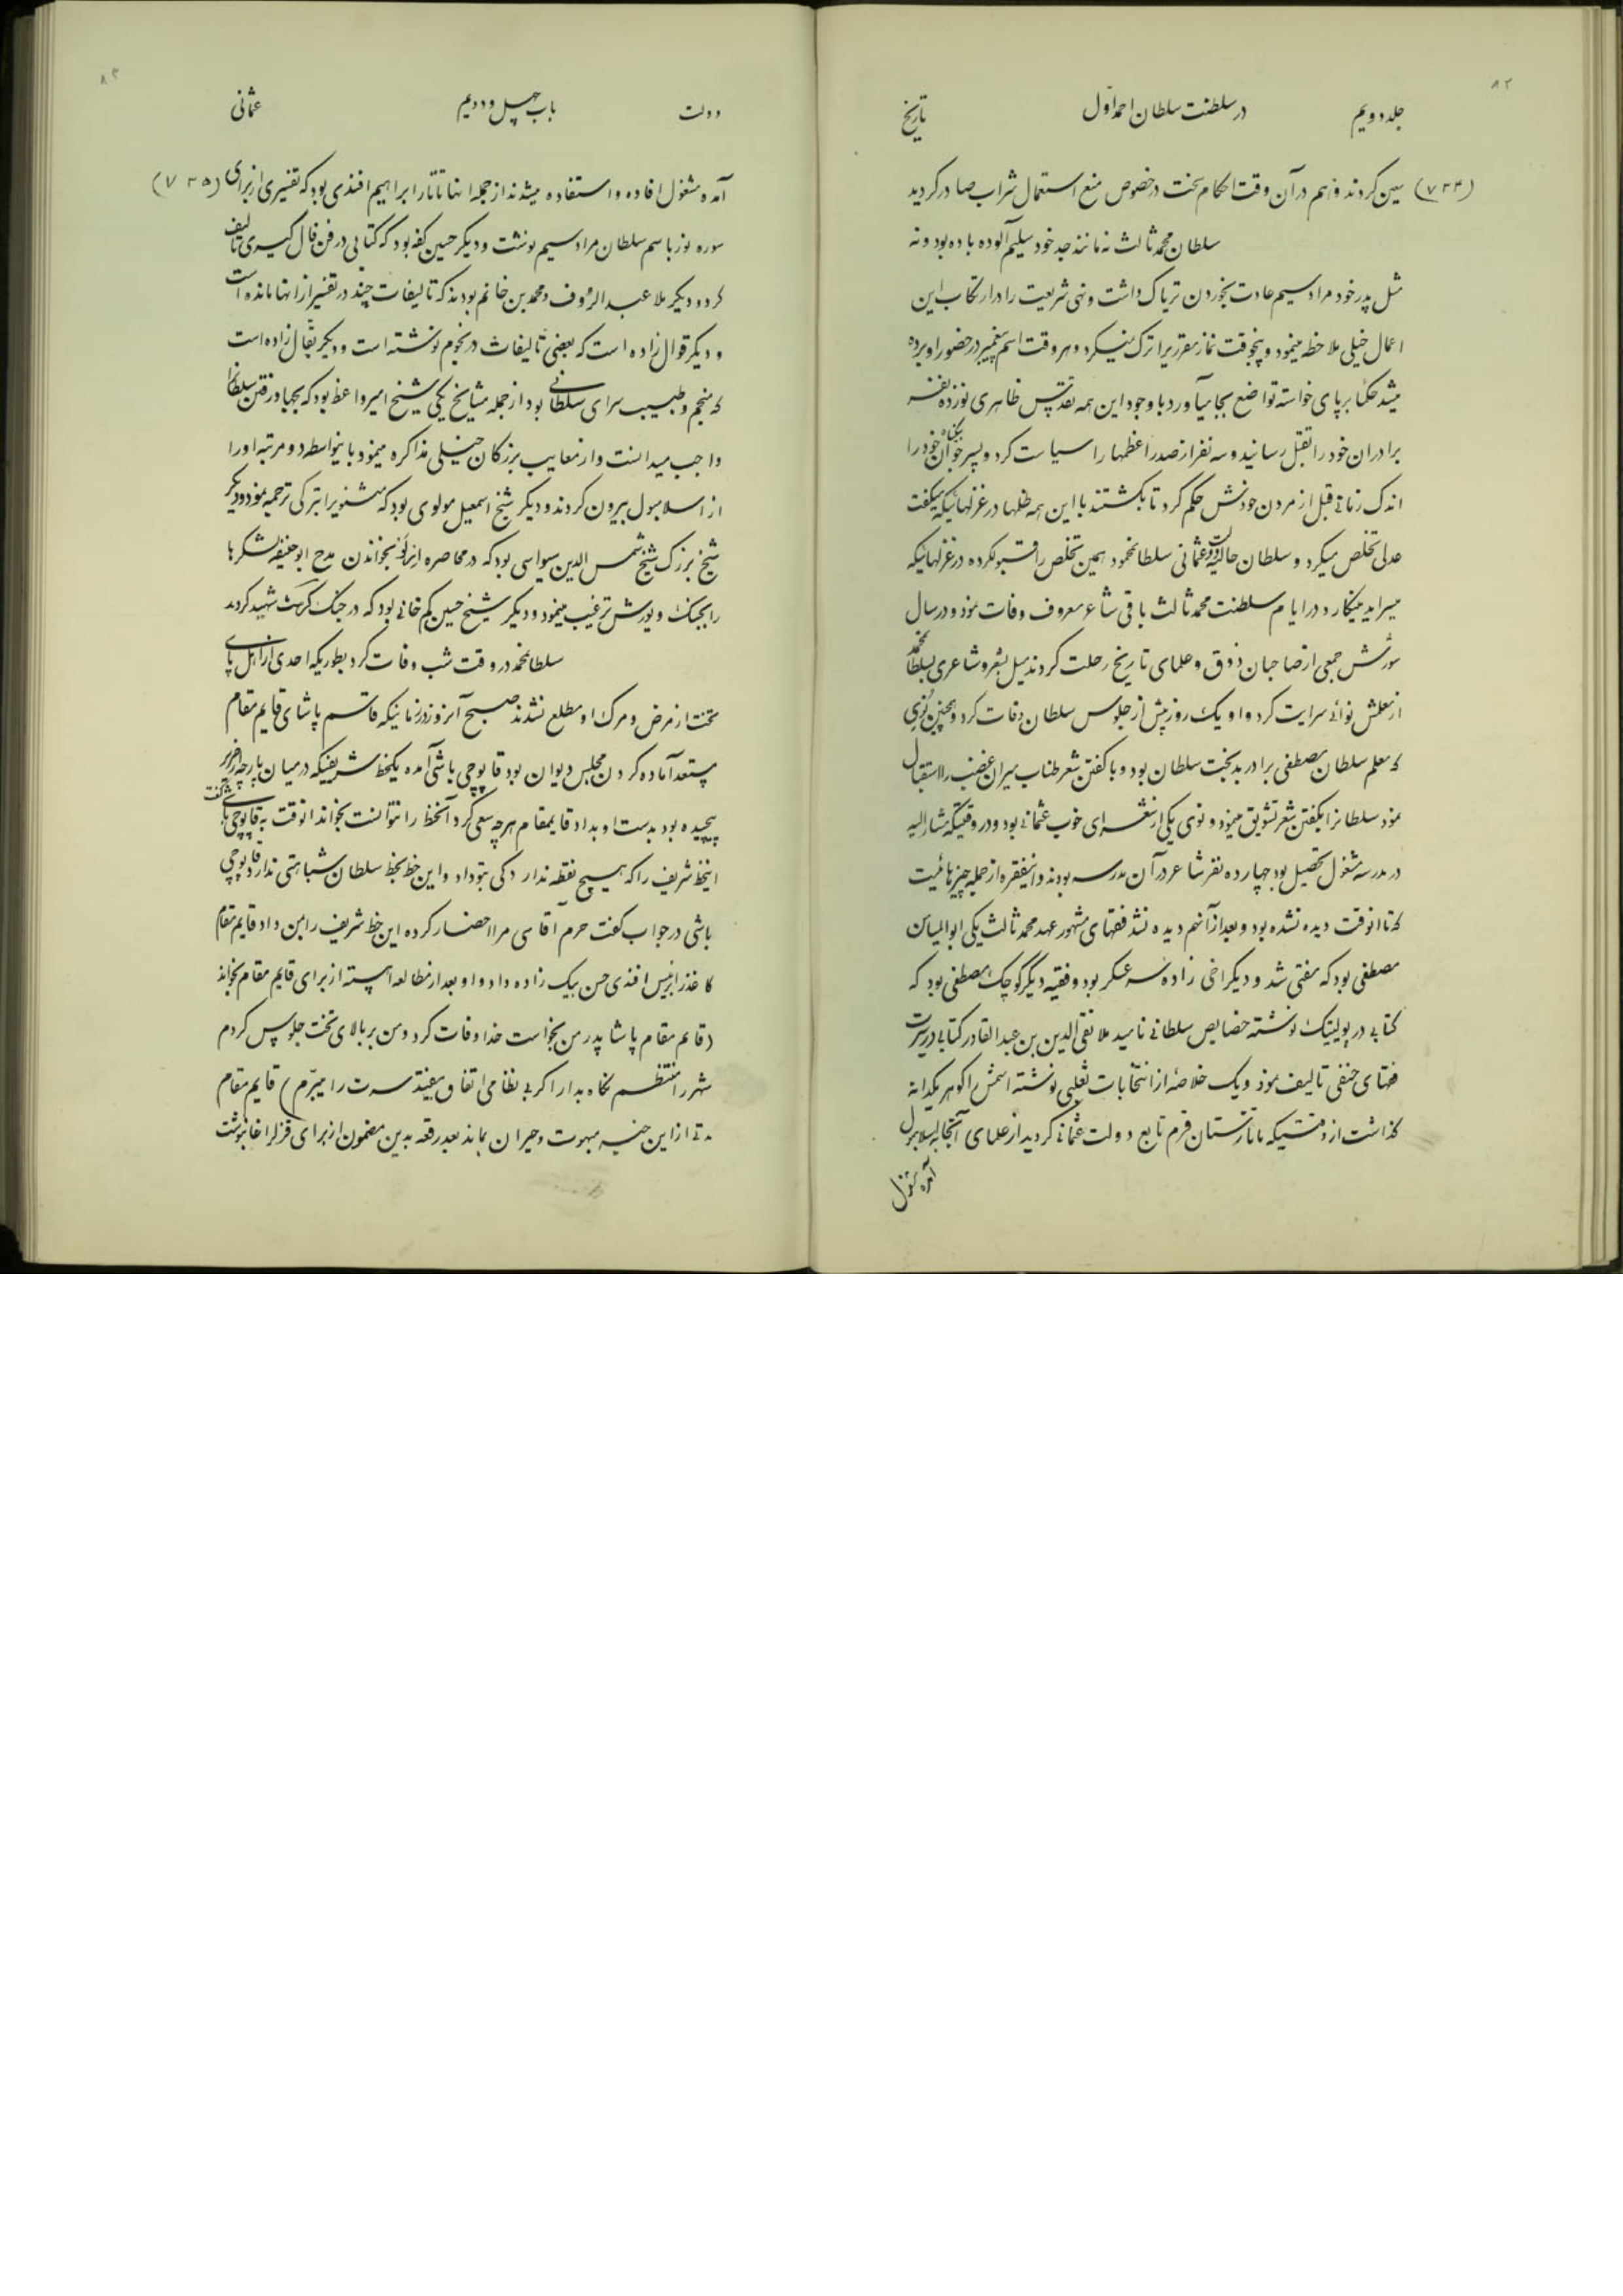 ۸۲
جلد دویم در سلطنت سلطان احمد اول تاریخ
(۷۳۴) سین کردند و هم در آن وقت احکام سخت در خصوص منع استعمال شراب صادر کردید
سلطان محمد ثالث نه مانند جد خود سلیم آلوده باده بود و نه
مثل پدر خود مراد سیم عادت بخوردن تریاک داشت و نهی شریعت را در ارتکاب این
اعمال خیلی ملاحظه مینمود و پنجوقت نماز مقرر را ترک نمیکرد و هر وقت اسم پیغمبر در حضور او برده
میشد حکما برپای خواسته تواضع بجا میآورد با وجود این همه تقدس ظاهری نوزده نفر
برادران خود را بقتل رسانید و سه نفر از صدر اعظمها را سیاست کرد و پسر جوان بیگناه خود را
اندک زمانی قبل از مردن خودش حکم کرد تا بکشتند با این همه ظلمها در غزلهائیکه میگفت
عدلی تخلص میکرد و سلطان حالیه دولت عثمانی سلطانمحمود همین تخلص را قبول کرده در غزلهائیکه
میسراید مینگارد در ایام سلطنت محمد ثالث باقی شاعر معروف وفات نمود و در سال
جمعی از صاحبان ذوق و علمای تاریخ رحلت کردند میل بشعر و شاعری بسلطان محمد
از معلمش نوائی سرایت کرد و او یک روز پیش از جلوس سلطان وفات کرد و همچنین
که معلم سلطان مصطفی برادر بدبخت سلطان بود و با گفتن شعر طناب میران غضب را استقبال
نمود سلطانرا بگفتن شعر تشویق مینمود و نوی یکی از شعرای خوب عثمانی بود و در وقتیکه مشارالیه
در مدرسه مشغول تحصیل بود چهارده نفر شاعر در آن مدرسه بودند و اینفقره از جمله چیزهائیست
که تا انوقت دیده نشده بود و بعد از آنهم دیده نشد فقهای مشهور عهد محمد ثالث یکی ابوالیاس
مصطفی بود که مفتی شد و دیگر اخی زاده سر عسکر بود و فقیه دیگر کوچک مصطفی بود که
کتابی در پولیتیک نوشته خصایص سلطانی نامید ملا تقی الدین بن عبدالقادر کتابی در سیرت
فقهای حنفی تالیف نمود و یک خلاصه از انتخابات ثعلبی نوشته اسمش را گوهر یکدانه
گذاشت از وقتیکه تاتارستان قرم تابع دولت عثمانی گردید از علمای آنجا به اسلامبول
آمده مشغول
۸۳
دولت باب چهل و دویم عثمانی
آمده مشغول افاده و استفاده میشدند از جمله انها تاتار ابراهیم افندی بود که تفسیری از برای (۷۳۵)
سوره نور باسم سلطان مراد سیم نوشت و دیگر حسین کفه بود که کتابی در فن فال گیری تالیف
کرد و دیگر ملا عبدالرؤف و محمد بن خانم بودند که تالیفات چند در تفسیر از انها مانده است
و دیگر قوال زاده است که بعضی تالیفات در نجوم نوشته است و دیگر بقال زاده است
که منجم و طبیب سرای سلطانی بود از جمله مشایخ یکی شیخ امیر واعظ بود که بجهاد رفتن سلطانرا
واجب میدانست و از معایب بزرگان خیلی مذاکره مینمود باینواسطه دو مرتبه او را
از اسلامبول بیرون کردند و دیگر شیخ اسمعیل مولوی بود که مثنویرا بترکی ترجمه نمود و دیگر
شیخ بزرگ شیخ شمس الدین سیواسی بود که در محاصره بخواندن مدح ابوحنیفه لشکر را
را بجنگ و یورش ترغیب مینمود و دیگر شیخ حسین خانی بود که در جنگ شهید کردند
سلطانمحمد در وقت شب وفات کرد بطوریکه احدی از اهل پای
تخت از مرض و مرک او مطلع نشدند صبح آنروز در زمانیکه قاسم پاشای قایم مقام
مستعد آماده کردن مجلس دیوان بود قاپوچی باشی آمده یکخط شریفیکه در میان پارچه حریر
پیچیده بود بدست او بداد قایمقام هر چه سعی کرد آنخط را نتوانست بخواند انوقت به قاپوچی باشی گفت
اینخط شریف را که هیچ نقطه ندارد کی بتو داد و این خط بخط سلطان شباهتی ندارد قاپوچی
باشی در جواب گفت حرم آقاسی مرا احضار کرده این خط شریف را بمن داد قایم مقام
کاغذرا برئیس افندی حسن بیک زاده داد و او بعد از مطالعه اهسته از برای قایم مقام بخواند
(قایم مقام پاشا پدر من بخواست خدا وفات کرد و من بر بالای تخت جلوس کردم
شهر را منتظم نگاه بدار اگر بی نظامی اتفاق بیفتد سرت را میبرم) قایم مقام
مدتی از این خبر مبهوت و حیران بماند بعد رقعه بدین مضمون از برای قزلر اغا بنوشت